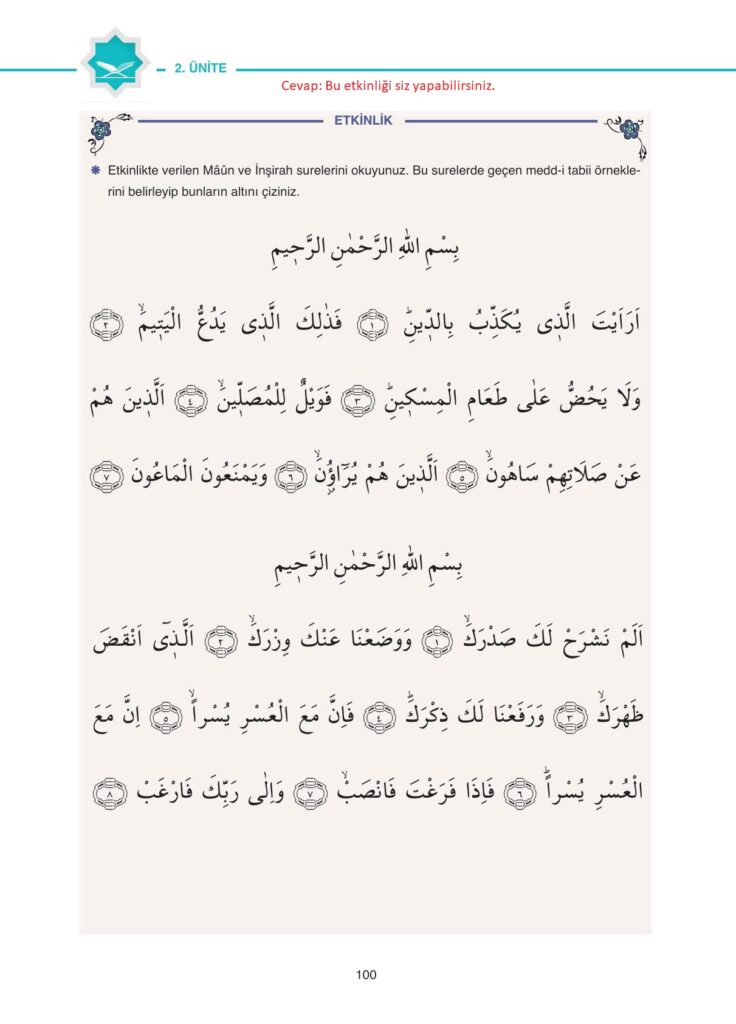 2. ÜNİTE
Cevap: Bu etkinliği siz yapabilirsiniz.
ETKİNLİK
Etkinlikte verilen Mâûn ve İnşirah surelerini okuyunuz. Bu surelerde geçen medd-i tabii örnekle-
rini belirleyip bunların altını çiziniz.
بِسْمِ اللهِ الرَّحْمٰنِ الرَّح۪يمِ
اَرَاَيْتَ الَّذ۪ي يُكَذِّبُ بِالدّ۪ينِۜ ﴿١﴾ فَذٰلِكَ الَّذ۪ي يَدُعُّ الْيَت۪يمَۙ ﴿٢﴾
وَلَا يَحُضُّ عَلٰى طَعَامِ الْمِسْك۪ينِۜ ﴿٣﴾ فَوَيْلٌ لِلْمُصَلّ۪ينَۙ ﴿٤﴾ اَلَّذ۪ينَ هُمْ
عَنْ صَلَاتِهِمْ سَاهُونَۙ ﴿٥﴾ اَلَّذ۪ينَ هُمْ يُرَٓاؤُ۫نَۙ ﴿٦﴾ وَيَمْنَعُونَ الْمَاعُونَ ﴿٧﴾
بِسْمِ اللهِ الرَّحْمٰنِ الرَّح۪يمِ
اَلَمْ نَشْرَحْ لَكَ صَدْرَكَۙ ﴿١﴾ وَوَضَعْنَا عَنْكَ وِزْرَكَۙ ﴿٢﴾ اَلَّذ۪ٓي اَنْقَضَ
ظَهْرَكَۙ ﴿٣﴾ وَرَفَعْنَا لَكَ ذِكْرَكَۜ ﴿٤﴾ فَاِنَّ مَعَ الْعُسْرِ يُسْراًۙ ﴿٥﴾ اِنَّ مَعَ
الْعُسْرِ يُسْراًۜ ﴿٦﴾ فَاِذَا فَرَغْتَ فَانْصَبْۙ ﴿٧﴾ وَاِلٰى رَبِّكَ فَارْغَبْ ﴿٨﴾
100